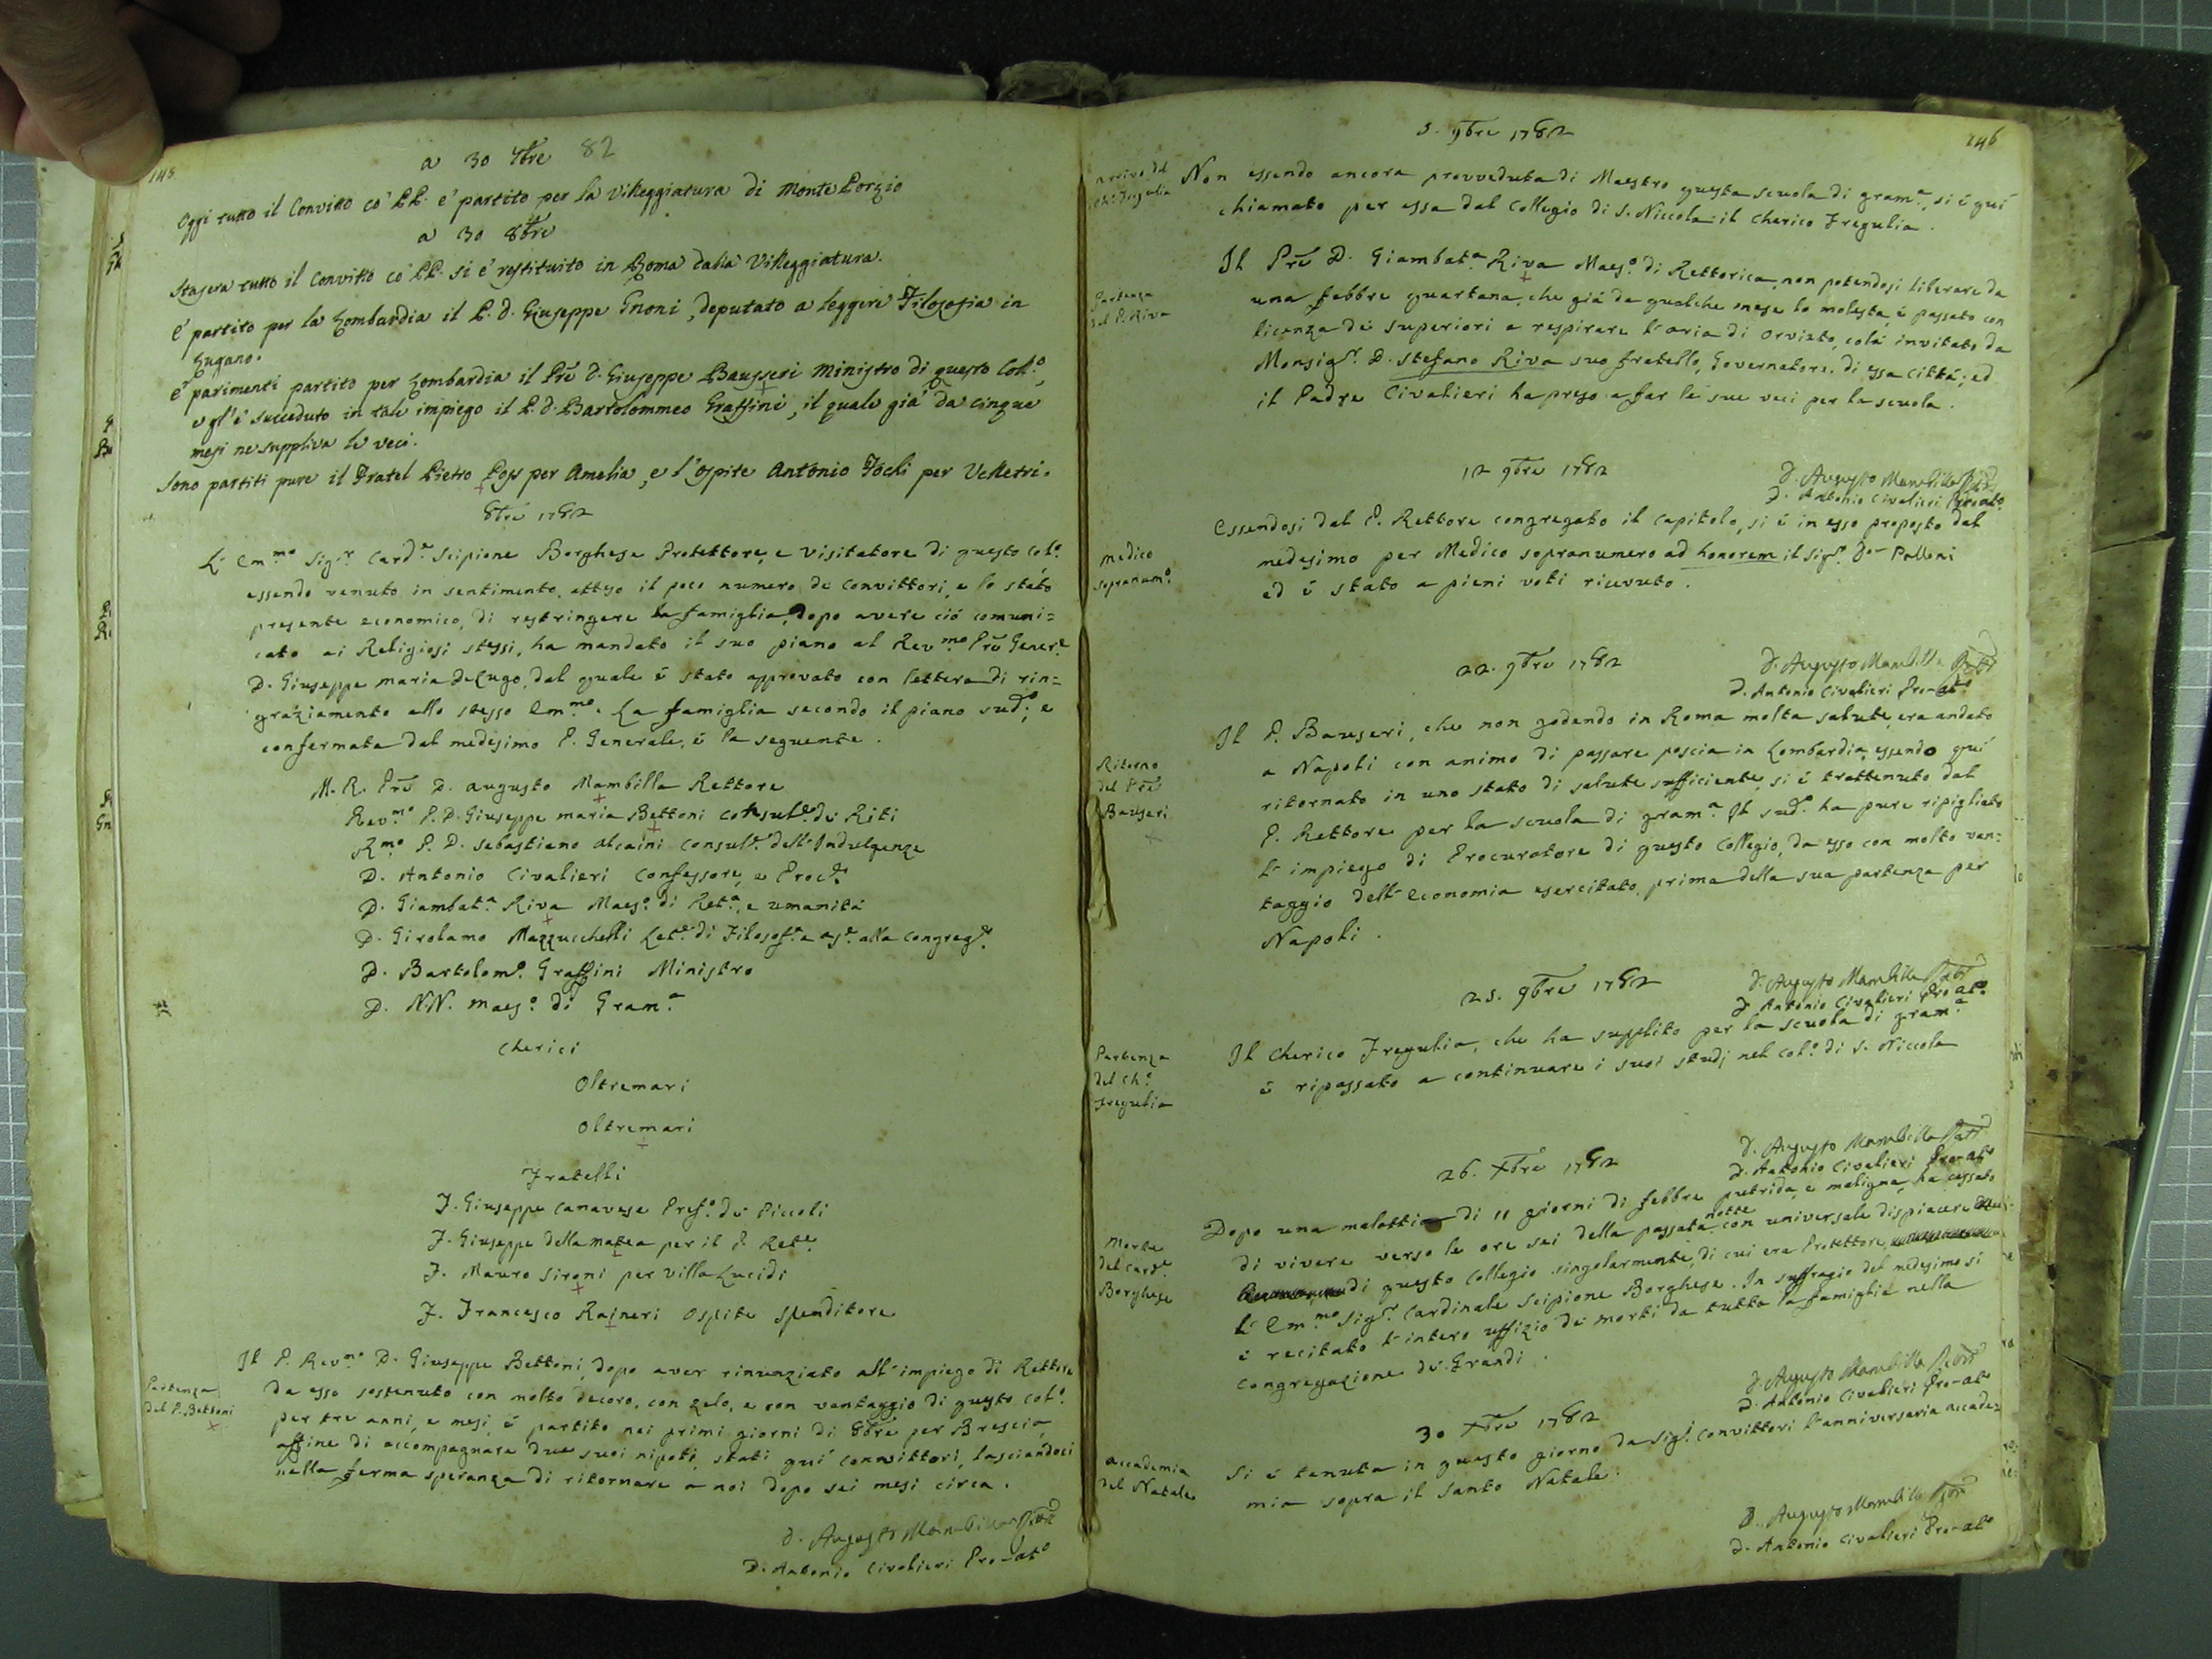 145
a 30 7bre 82
Oggi tutto il Convitto co' PP. è partito per la Villeggiatura di Monte Porzio
a 30 8bre
Stasera tutto il Convitto co' PP. si è restituito in Roma dalla Villeggiatura.
È partito per la Lombardia il P. D. Giuseppe Gnoni, deputato a leggere Filosofia in
Lugano.
È parimenti partito per Lombardia il Prē D. Giuseppe Bauseri Ministro di questo Coll.o,
e gl'è succeduto in tale impiego il P. D. Bartolommeo Graffini, il quale già da cinque
mesi ne suppliva le veci.
Sono partiti pure il Fratel Pietro Pogs per Amelia, e l'ospite Antonio per Velletri.
8bre 1782
L' Em.mo Sig.r Card.e Scipione Borghese Protettore, e Visitatore di questo Col.o
essendo venuto in sentimento, atteso il poco numero de Convittori, e lo stato
presente economico, di restringere la famiglia, dopo avere ciò comuni=
cato ai Religiosi stessi, ha mandato il suo piano al Rev.mo Prē Gener.e
D. Giuseppe maria De Lugo, dal quale è stato approvato con lettera di rin=
graziamento allo stesso Em.mo. La famiglia secondo il piano sud.o, e
confermata dal medesimo P. Generale, è la seguente.
M. R. Prē D. Augusto Mambilla Rettore
Rev.mo P. D. Giuseppe maria Bettoni Consult.e de Riti
R.mo P. D. Sebastiano Alcaini Consult.e dell'Indulgenze
D. Antonio Civalieri Confessore, e Proc.e
D. Giambat.a Riva Maes.o di Ret.a, e umanità
D. Girolamo Mazzucchelli Let.e di Filosof.a e as.e alla Congreg.e
D. Bartolom.o Graffini Ministro
D. N.N. Maes.o di Gram.a
Cherici
Oltremari
Oltremari
Fratelli
F. Giuseppe Canavese Pref.o de' Piccoli
F. Giuseppe della matea per il P. Ret.e
F. Mauro Sironi per Villa Lucidi
F. Francesco Raineri Ospite Spenditore
Partenza
del P. Bettoni
Il P. Rev.mo D. Giuseppe Bettoni, dopo aver rinunziato all'impiego di Rettore
da esso sostenuto con molto decoro, con zelo, e con vantaggio di questo Col.o
per tre anni, e mesi, è partito nei primi giorni di 8bre per Brescia,
affine di accompagnare due suoi nipoti, stati qui convittori, lasciandoci
nella ferma speranza di ritornare a noi dopo sei mesi circa.
D. Augusto Mambilla Rett
D. Antonio Civalieri Pro-at.o
146
5. 9bre 1782
Arrivo del
Ch. Fregulia
Non essendo ancora provveduta di Maestro questa scuola di gram.a, si è qui
chiamato per essa dal Collegio di S. Niccola il Cherico Fregulia.
Partenza
del P. Riva
Il Prē D. Giambat.a Riva Maes.o di Rettorica, non potendosi liberare da
una febbre quartana, che già da qualche mese lo molesta, è passato con
licenza de' superiori a respirare l'aria di Orvieto, colà invitato da
Monsig.r D. Stefano Riva suo fratello, Governatore di essa Città; ed
il Padre Civalieri ha preso a far le sue veci per la scuola.
D. Augusto Mambilla Rett
D. Antonio Civalieri Pro-at.o
12 9bre 1782
Medico
sopranum.o
Essendosi dal P. Rettore congregato il Capitolo, si è in esso proposto dal
medesimo per Medico sopranumero ad honorem il Sig.r Do- Palloni
ed è stato a pieni voti ricevuto.
D. Augusto Mambilla Rett
D. Antonio Civalieri Pro-at.o
22. 9bre 1782
Ritorno
del Prē
Bauseri
Il P. Bauseri, che non godendo in Roma molta salute, era andato
a Napoli con animo di passare poscia in Lombardia, essendo qui
ritornato in uno stato di salute sufficiente, si è trattenuto dal
P. Rettore per la scuola di gram.a Il sud.o ha pure ripigliato
l'impiego di Procuratore di questo Collegio, da esso con molto van=
taggio dell'economia esercitato, prima della sua partenza per
Napoli.
D. Augusto Mambilla Rett
D. Antonio Civalieri Pro-at.o
25. 9bre 1782
Partenza
del Ch.o
Fregulia
Il Cherico Fregulia, che ha supplito per la scuola di gram.a
è ripassato a continuare i suoi studj nel Col.o di S. Niccola
D. Augusto Mambilla Rett
D. Antonio Civalieri Pro-at.o
26. Xbre 1782
Morte
del Card.e
Borghese
Dopo una malattia di 11 giorni di febbre putrida, e maligna, ha cessato
di vivere verso le ore sei della passata notte con universale dispiacere
di questo Collegio singolarmente, di cui era Protettore,
l'Em.mo Sig.r Cardinale Scipione Borghese. In suffragio del medesimo si
è recitato l'intero uffizio de' morti da tutta la famiglia nella
congregazione de' Grandi.
D. Augusto Mambilla Rett
D. Antonio Civalieri Pro-at.o
30 Xbre 1782
Accademia
del Natale
Si è tenuta in questo giorno da Sig.i Convittori l'anniversaria accade=
mia sopra il Santo Natale.
D. Augusto Mambilla Rett
D. Antonio Civalieri Pro-at.o